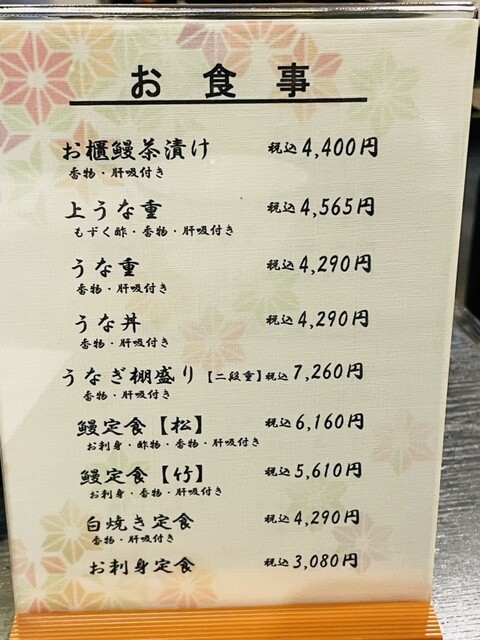 お食事
お櫃鰻茶漬け 税込4,400円
香物・肝吸付き
上うな重 税込4,565円
もずく酢・香物・肝吸付き
うな重 税込4,290円
香物・肝吸付き
うな丼 税込4,290円
香物・肝吸付き
うなぎ棚盛り【二段重】税込7,260円
香物・肝吸付き
鰻定食【松】 税込6,160円
お刺身・酢物・香物・肝吸付き
鰻定食【竹】 税込5,610円
お刺身・香物・肝吸付き
白焼き定食 税込4,290円
香物・肝吸付き
お刺身定食 税込3,080円